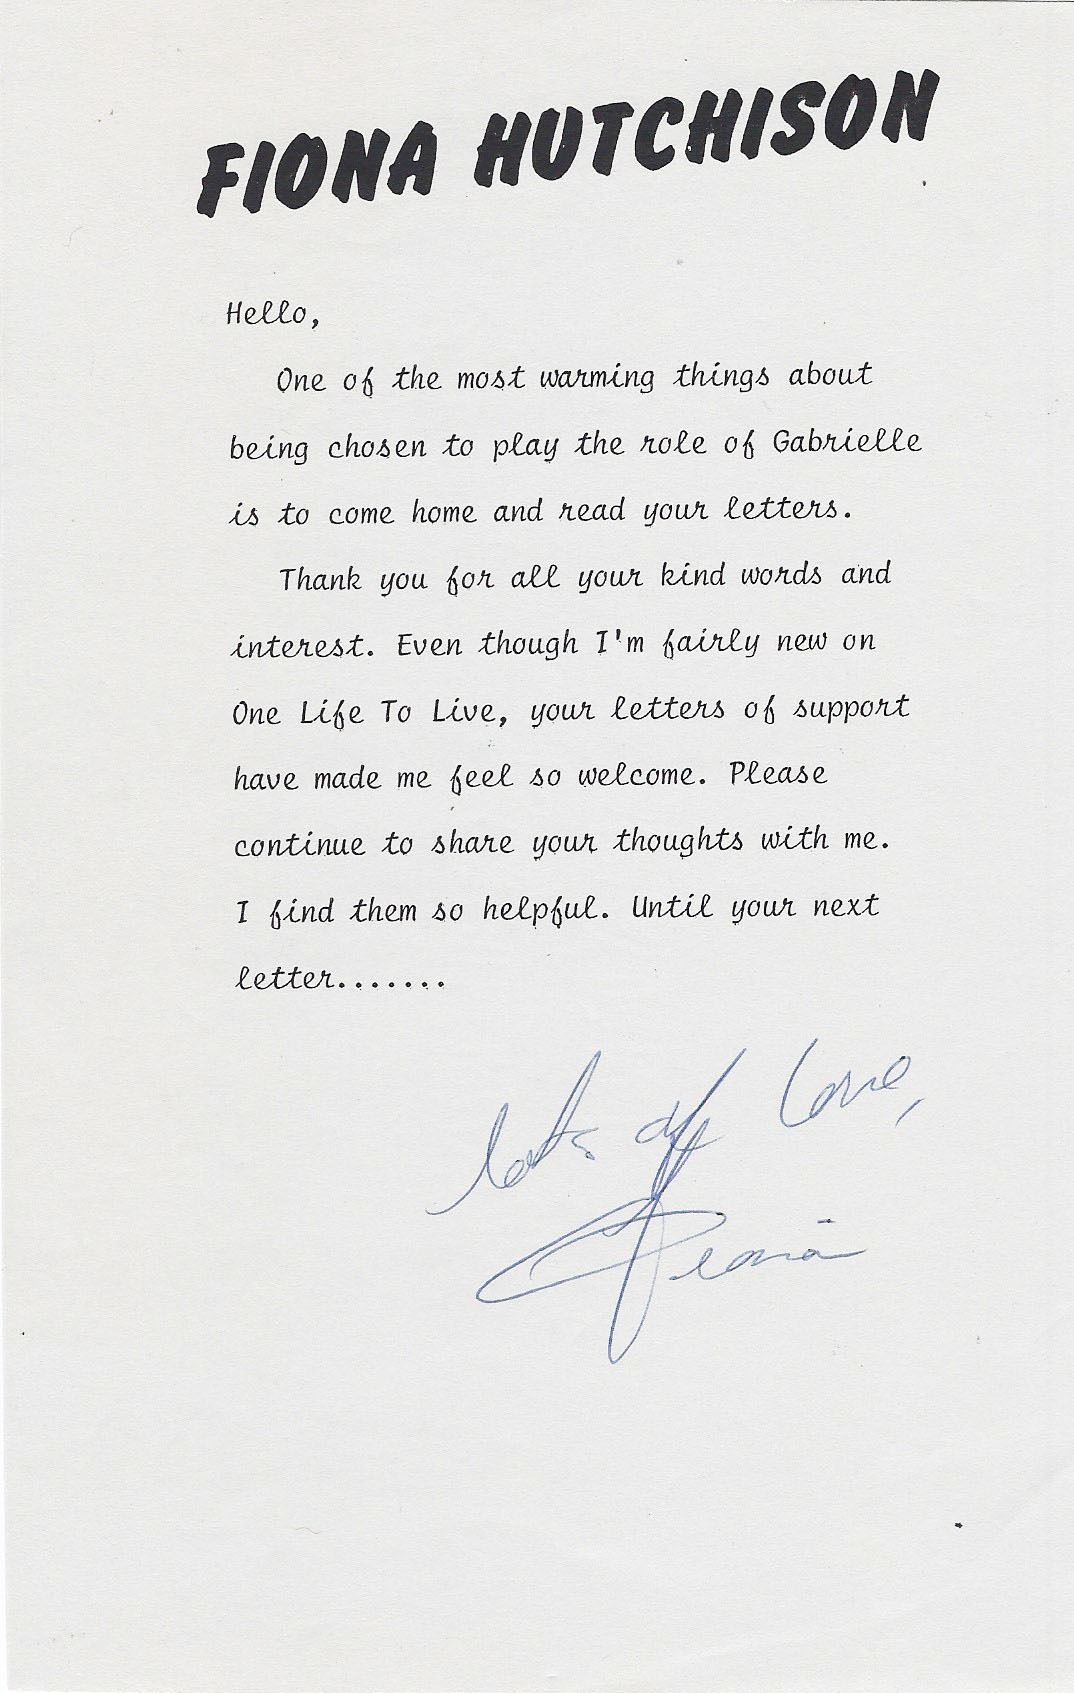 FIONA HUTCHISON
Hello,
One of the most warming things about
being chosen to play the role of Gabrielle
is to come home and read your letters.
Thank you for all your kind words and
interest. Even though I'm fairly new on
One Life To Live, your letters of support
have made me feel so welcome. Please
continue to share your thoughts with me.
I find them so helpful. Until your next
letter.......
lots of love,
Fiona